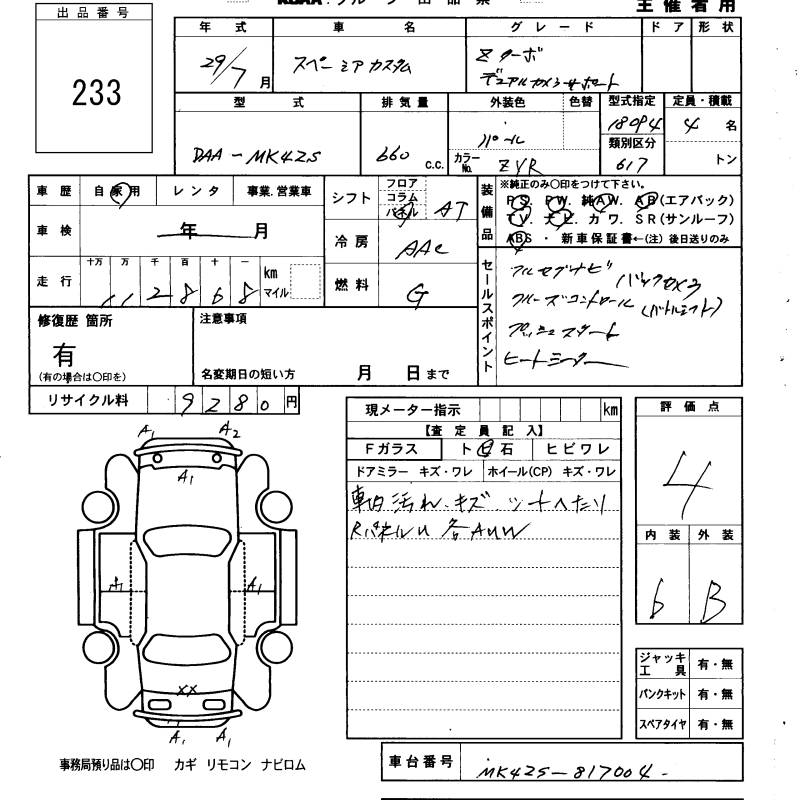 出品番号
233
主催者用
年式 車名 グレード ドア 形状
29/7月 スペーシアカスタム Zターボ
デュアルカメラサポート
型式 排気量 外装色 色替 型式指定 定員・積載
DAA-MK42S 660 c.c. パール カラーNo. ZVR 18094 4名
類別区分 617 トン
車歴 自家用 レンタ 事業.営業車
車検 年 月
走行 十万 万 千 百 十 一 km マイル
112868
シフト フロア コラム パネル AT
冷房 AAC
燃料 G
装備品 ※純正のみ○印をつけて下さい。
PS. PW. 純AW. AB(エアバック)
TV. ナビ. カワ. SR(サンルーフ)
ABS・新車保証書←(注)後日送りのみ
セールスポイント
フルセグナビ バックカメラ
クルーズコントロール (パドルシフト)
プッシュスタート
ヒートシーター
修復歴 箇所
有
(有の場合は○印を)
注意事項
名変期日の短い方 月 日まで
リサイクル料 9280円
現メーター指示 km
【査定員記入】
Fガラス ト 石 ヒビワレ
ドアミラー キズ・ワレ ホイール(CP) キズ・ワレ
車内汚れ、キズ
Rパネル 各AUW
評価点
4
内装 外装
6 B
ジャッキ工具 有・無
パンクキット 有・無
スペアタイヤ 有・無
A1 A2
A1
A1 A1
XX
A1 A1
事務局預り品は○印 カギ リモコン ナビロム
車台番号 MK42S-817004